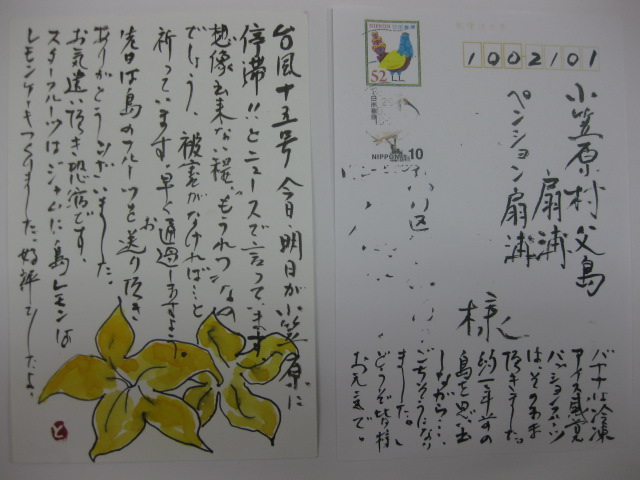 台風十五号 今日、明日が小笠原に
停滞!!とニュースで言っています
想像出来ない程、もうれつなの
でしょう、被害がなければ…と
祈っています。早く通過しますよう。
先日は島のフルーツをお送り頂き
ありがとうございました。
お気遣い頂き恐縮です。
スターフルーツはジャムに 島レモンは
レモンケーキつくりました。好評でしたよ、
と
NIPPON 日本郵便
52
NIPPON 10
1002101
小笠原村 父島
扇浦
ペンション扇浦
様
区
バナナは冷凍
アイス感覚
パッションフルーツ
はそのまま
頂きました。
約一年前の
島を思い出
しながら…
ごちそうになり
ました。
どうぞ皆様
お元気で。